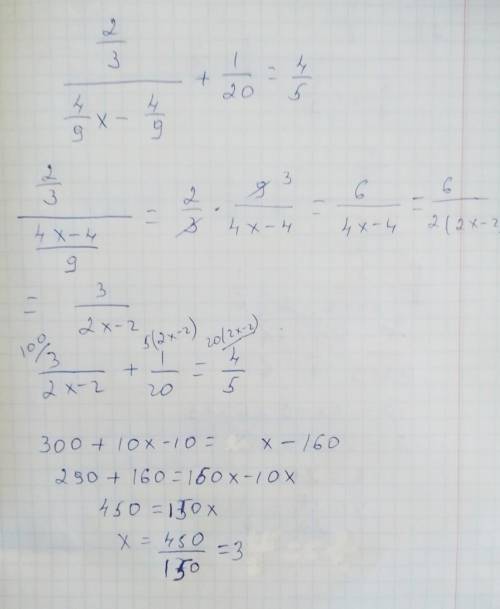 2/3 / (4/9 x - 4/9) + 1/20 = 4/5
2/3 / ((4x-4)/9) = 2/3 · 9 3/(4x-4) = 6/(4x-4) = 6/2(2x-2
= 3/(2x-2)
100/ 5(2x-2) 20(2x-2)
3/(2x-2) + 1/20 = 4/5
300 + 10x - 10 = x - 160
290 + 160 = 160x - 10x
450 = 150x
x = 450/150 = 3